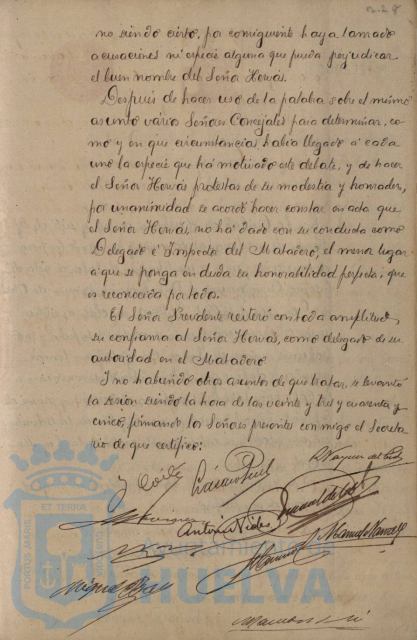 no siendo cierto, por consiguiente haya lanzado
acusaciones ni especie alguna que pueda perjudicar
el buen nombre del Señor Hervás.
Después de hacer uso de la palabra sobre el mismo
asunto varios Señores Concejales para determinar, co-
mo y en que circunstancias había llegado á cada
uno la especie que ha motivado este debate, y de hacer
el Señor Hervás protestas de su modestia y honradez,
por unanimidad se acordó hacer constar en acta que
el Señor Hervás, no ha dado con su conducta como
Delegado é Inspector del Matadero, el menor lugar
á que se ponga en duda su honorabilidad perfecta; que
es reconocida por todos.
El Señor Presidente reiteró con toda amplitud,
su confianza al Señor Hervás, como delegado de su
autoridad en el Matadero
Y no habiendo otros asuntos de que tratar, se levantó
la sesión siendo la hora de las veinte y tres y cuarenta y
cinco, firmando los Señores presentes conmigo el Secreta-
rio de que certifico:
Antonio
Manuel
Miguel
PORTUS MARIS
ET TERRÆ
CUSTODIA
Ayuntamiento de
HUELVA